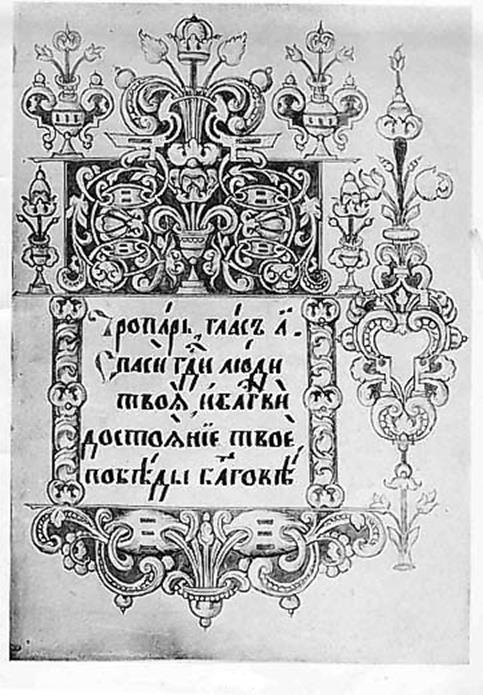 Тропа́рь, гла́съ а҃.
Спасѝ гд҇и лю́ди
твоѧ̀, и҆ бл҃гвѝ
достоѧ́нїе твоѐ,
побѣ́ды бл҃говѣ́